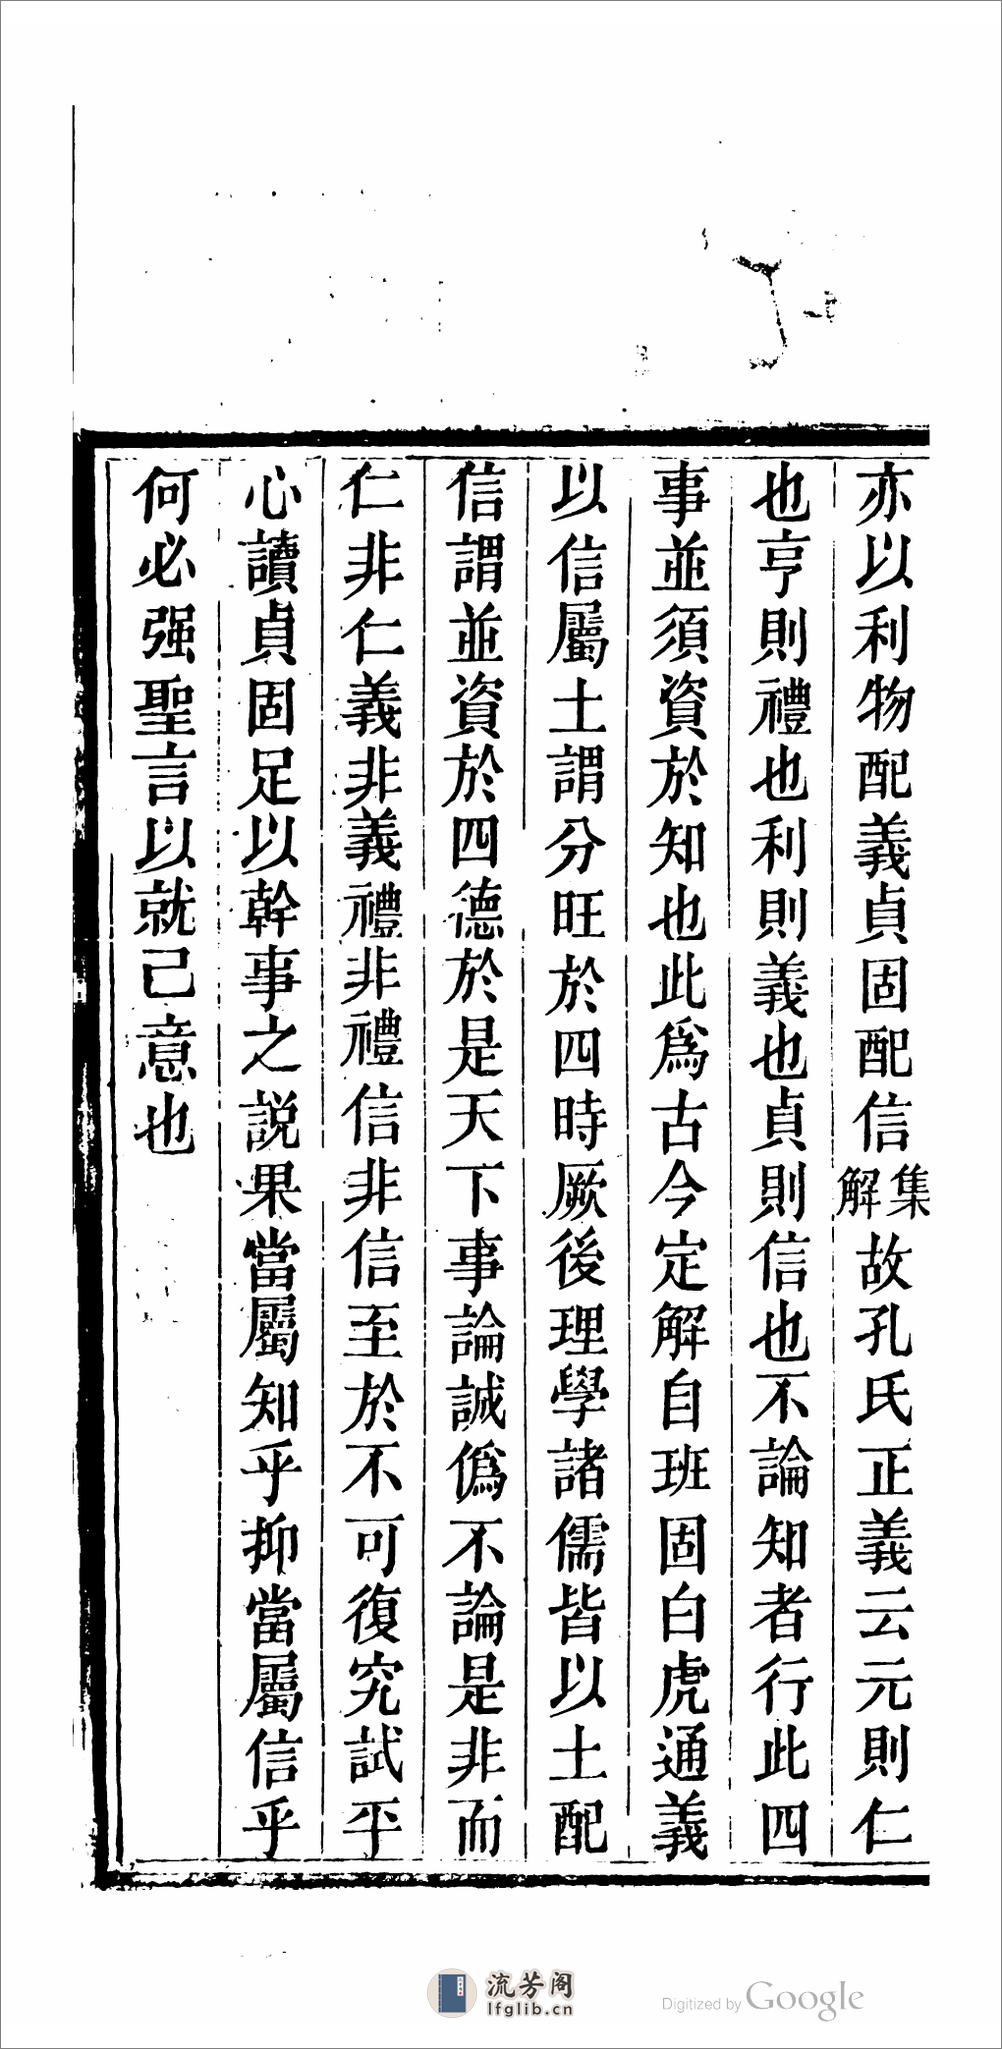 亦以利物配義貞固配信集解故孔氏正義云元則仁
也亨則禮也利則義也貞則信也不論知者行此四
事並須資於知也此爲古今定解自班固白虎通義
以信屬土謂分旺於四時厥後理學諸儒皆以土配
信謂並資於四德於是天下事論誠僞不論是非而
仁非仁義非義禮非禮信非信至於不可復究試平
心讀貞固足以幹事之説果當屬知乎抑當屬信乎
何必强聖言以就己意也
流芳阁
lfglib.cn
Digitized by Google